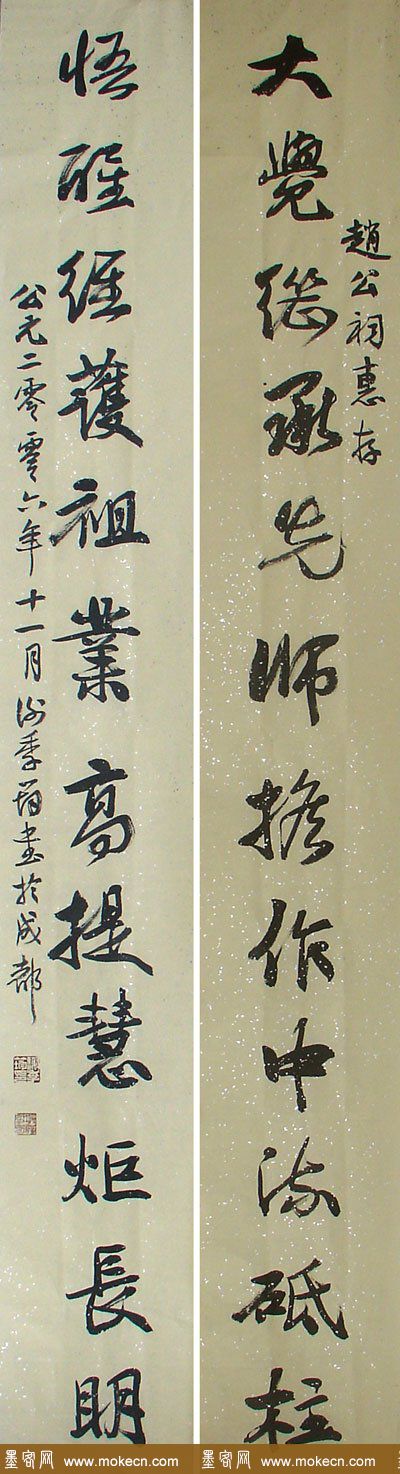 趙公祠惠存
大覺繼承先師擔作中流砥柱
悟醒維護祖業高提慧炬長明
公元二零零六年十一月謝季筠書於成都
墨客网 www.mokecn.com
墨客网 www.mokecn.com